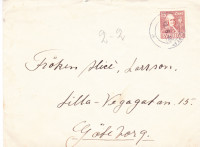 2-2
Fröken Alice Larsson.
Lilla-Vegagatan 15.
Göteborg.